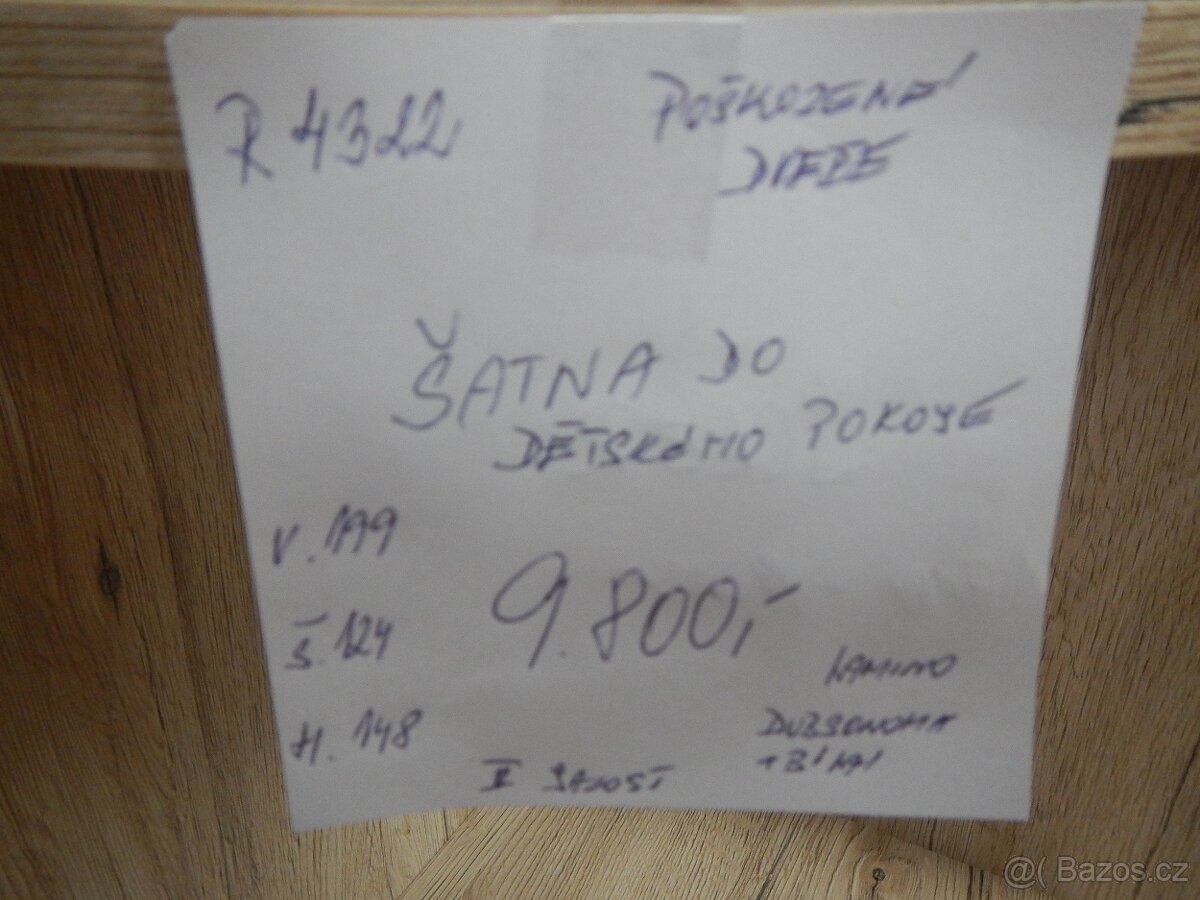 R 4322
POŠKOZENÁ
DVEŘE
ŠATNA DO
DĚTSKÉHO POKOJE
V. 199
Š. 124
H. 148
9.800,-
LAMINO
DUB SONOMA
+ BÍLÁ
II JAKOST
@( Bazos.cz